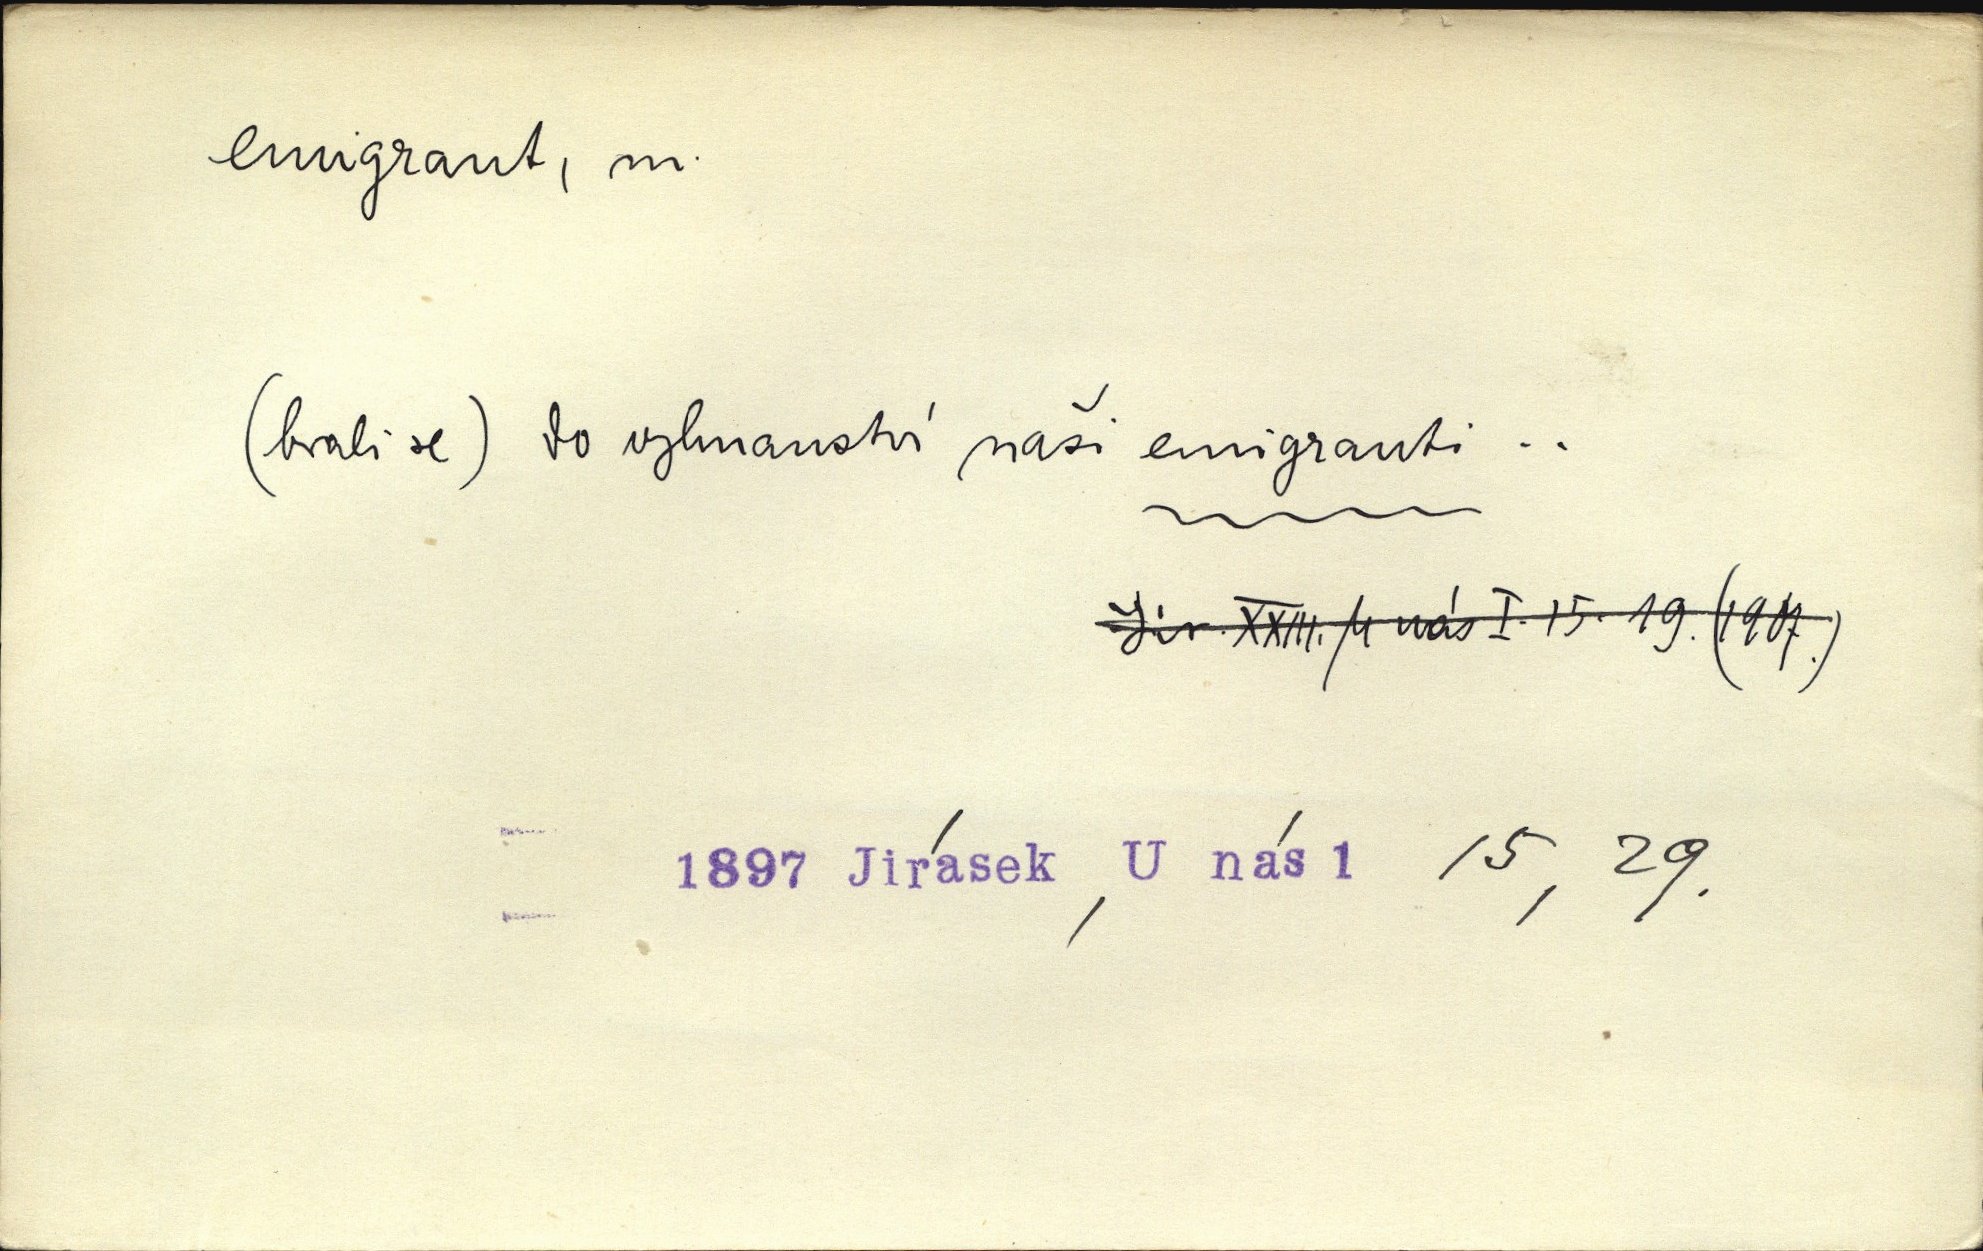 emigrant, m.
(brali se) do vyhnanství naši emigranti ..
Jir. XXIII. / U nás I. 15. 19. (1907.)
1897 Jirásek, U nás 1 15, 29.